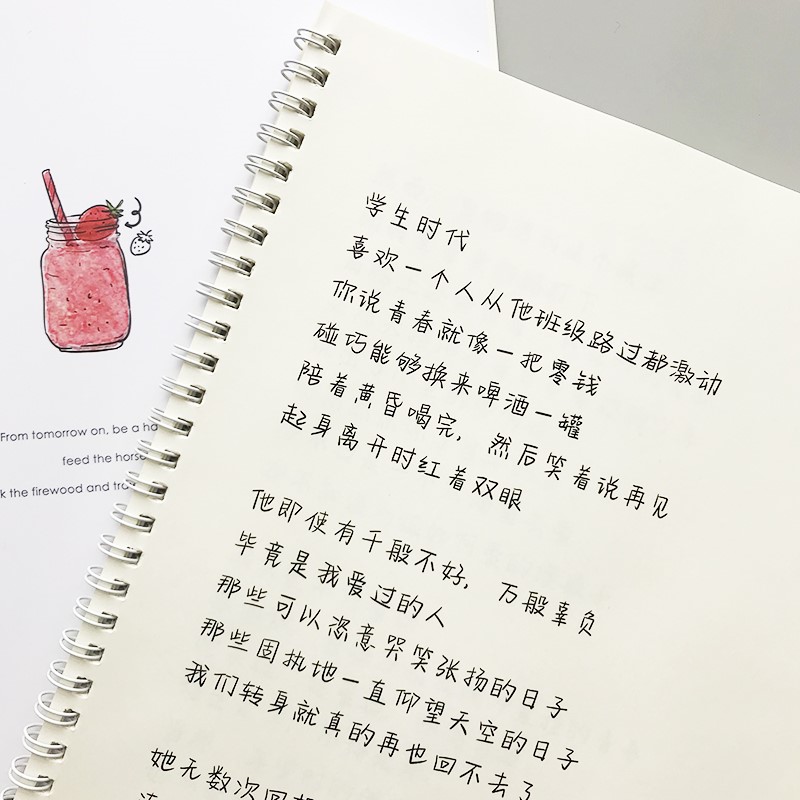 学生时代
喜欢一个人从他班级路过都激动
你说青春就像一把零钱
碰巧能够换来啤酒一罐
陪着黄昏喝完，然后笑着说再见
起身离开时红着双眼
他即使有千般不好，万般辜负
毕竟是我爱过的人
那些可以恣意哭笑张扬的日子
那些固执地一直仰望天空的日子
我们转身就真的再也回不去了
她无数次回
From tomorrow on, be a ha
feed the horse
k the firewood and tra